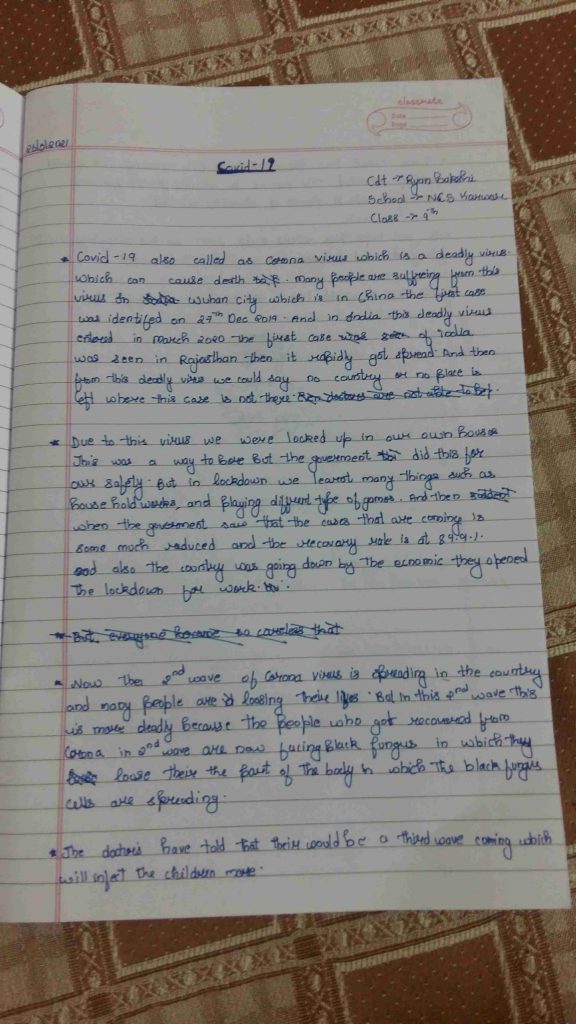 classmate
Date
Page
Covid-19
Cdt → Ryan Bakshi
School → NCS
Class → 9th
* Covid-19 also called as corona virus which is a deadly virus.
which can cause death. many people are suffreing from this
virus In wuhan city which is in China the first case
was identifed on 27th Dec 2019. And in India this deadly virus
entered in march 2020 the first case was seen of india
was seen in Rajasthan then it rapidly got spread. And then
from this deadly virus we could say no country or no place is
left where this case is not there. Even doctors are not able to
* Due to this virus we were locked up in our own houses
This was a way to bore But the goverment did this for
our safety. But in lockdown we learnt many things such as
house hold works, and playing diffrent type of games. And then
when the goverment saw that the cases that are coming is
some much reduced and the recovary rate is at 84.9.1.
and also the country was going down by the ecnomic they opened
the lockdown for work.
* But everyone became so careless that
* Now the 2nd wave of corona virus is spreading in the country
and many people are loosing their lifes. But in this 2nd wave this
is more deadly because the people who got recovered from
corona in 2nd wave are now facing Black fungus in which they
loose their the part of the body in which the black fungus
cells are spreading.
* The doctors have told that their would be a third wave coming which
will infect the children more.